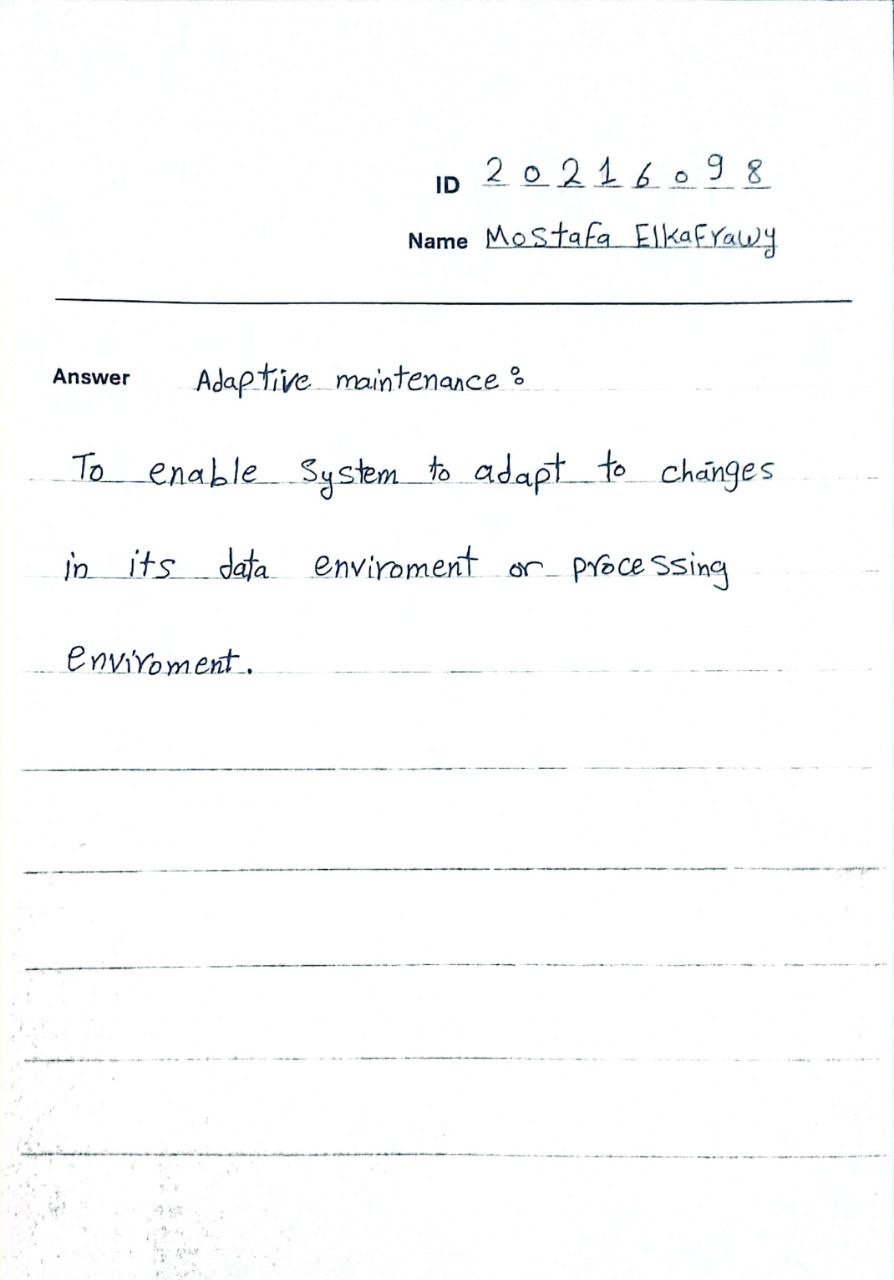 ID 20216098
Name Mostafa Elkafrawy
Answer Adaptive maintenance:
To enable System to adapt to changes
in its data enviroment or processing
enviroment.